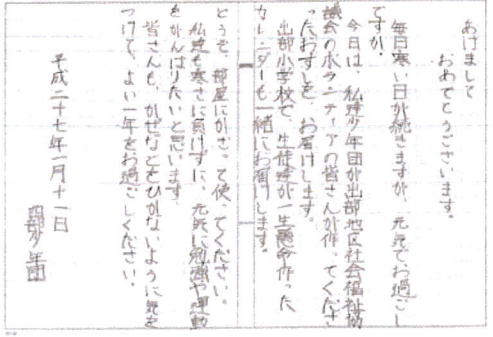 あけまして
おめでとうございます。
毎日寒い日が続きますが、元気でお過ごし
ですか。
今日は、私達少年団が出部地区社会福祉協
議会のボランティアの皆さんが作ってくださ
ったおすしを、お届けします。
出部小学校で、生徒達が一生懸命作った
カレンダーも一緒にお届けします。
どうぞ、部屋にかざって使ってください。
私達も寒さに負けずに、元気に勉強や運動
をがんばりたいと思います。
皆さんも、かぜなどをひかないように気を
つけて、よい一年をお過ごしください。
平成二十七年一月十一日
出部少年団